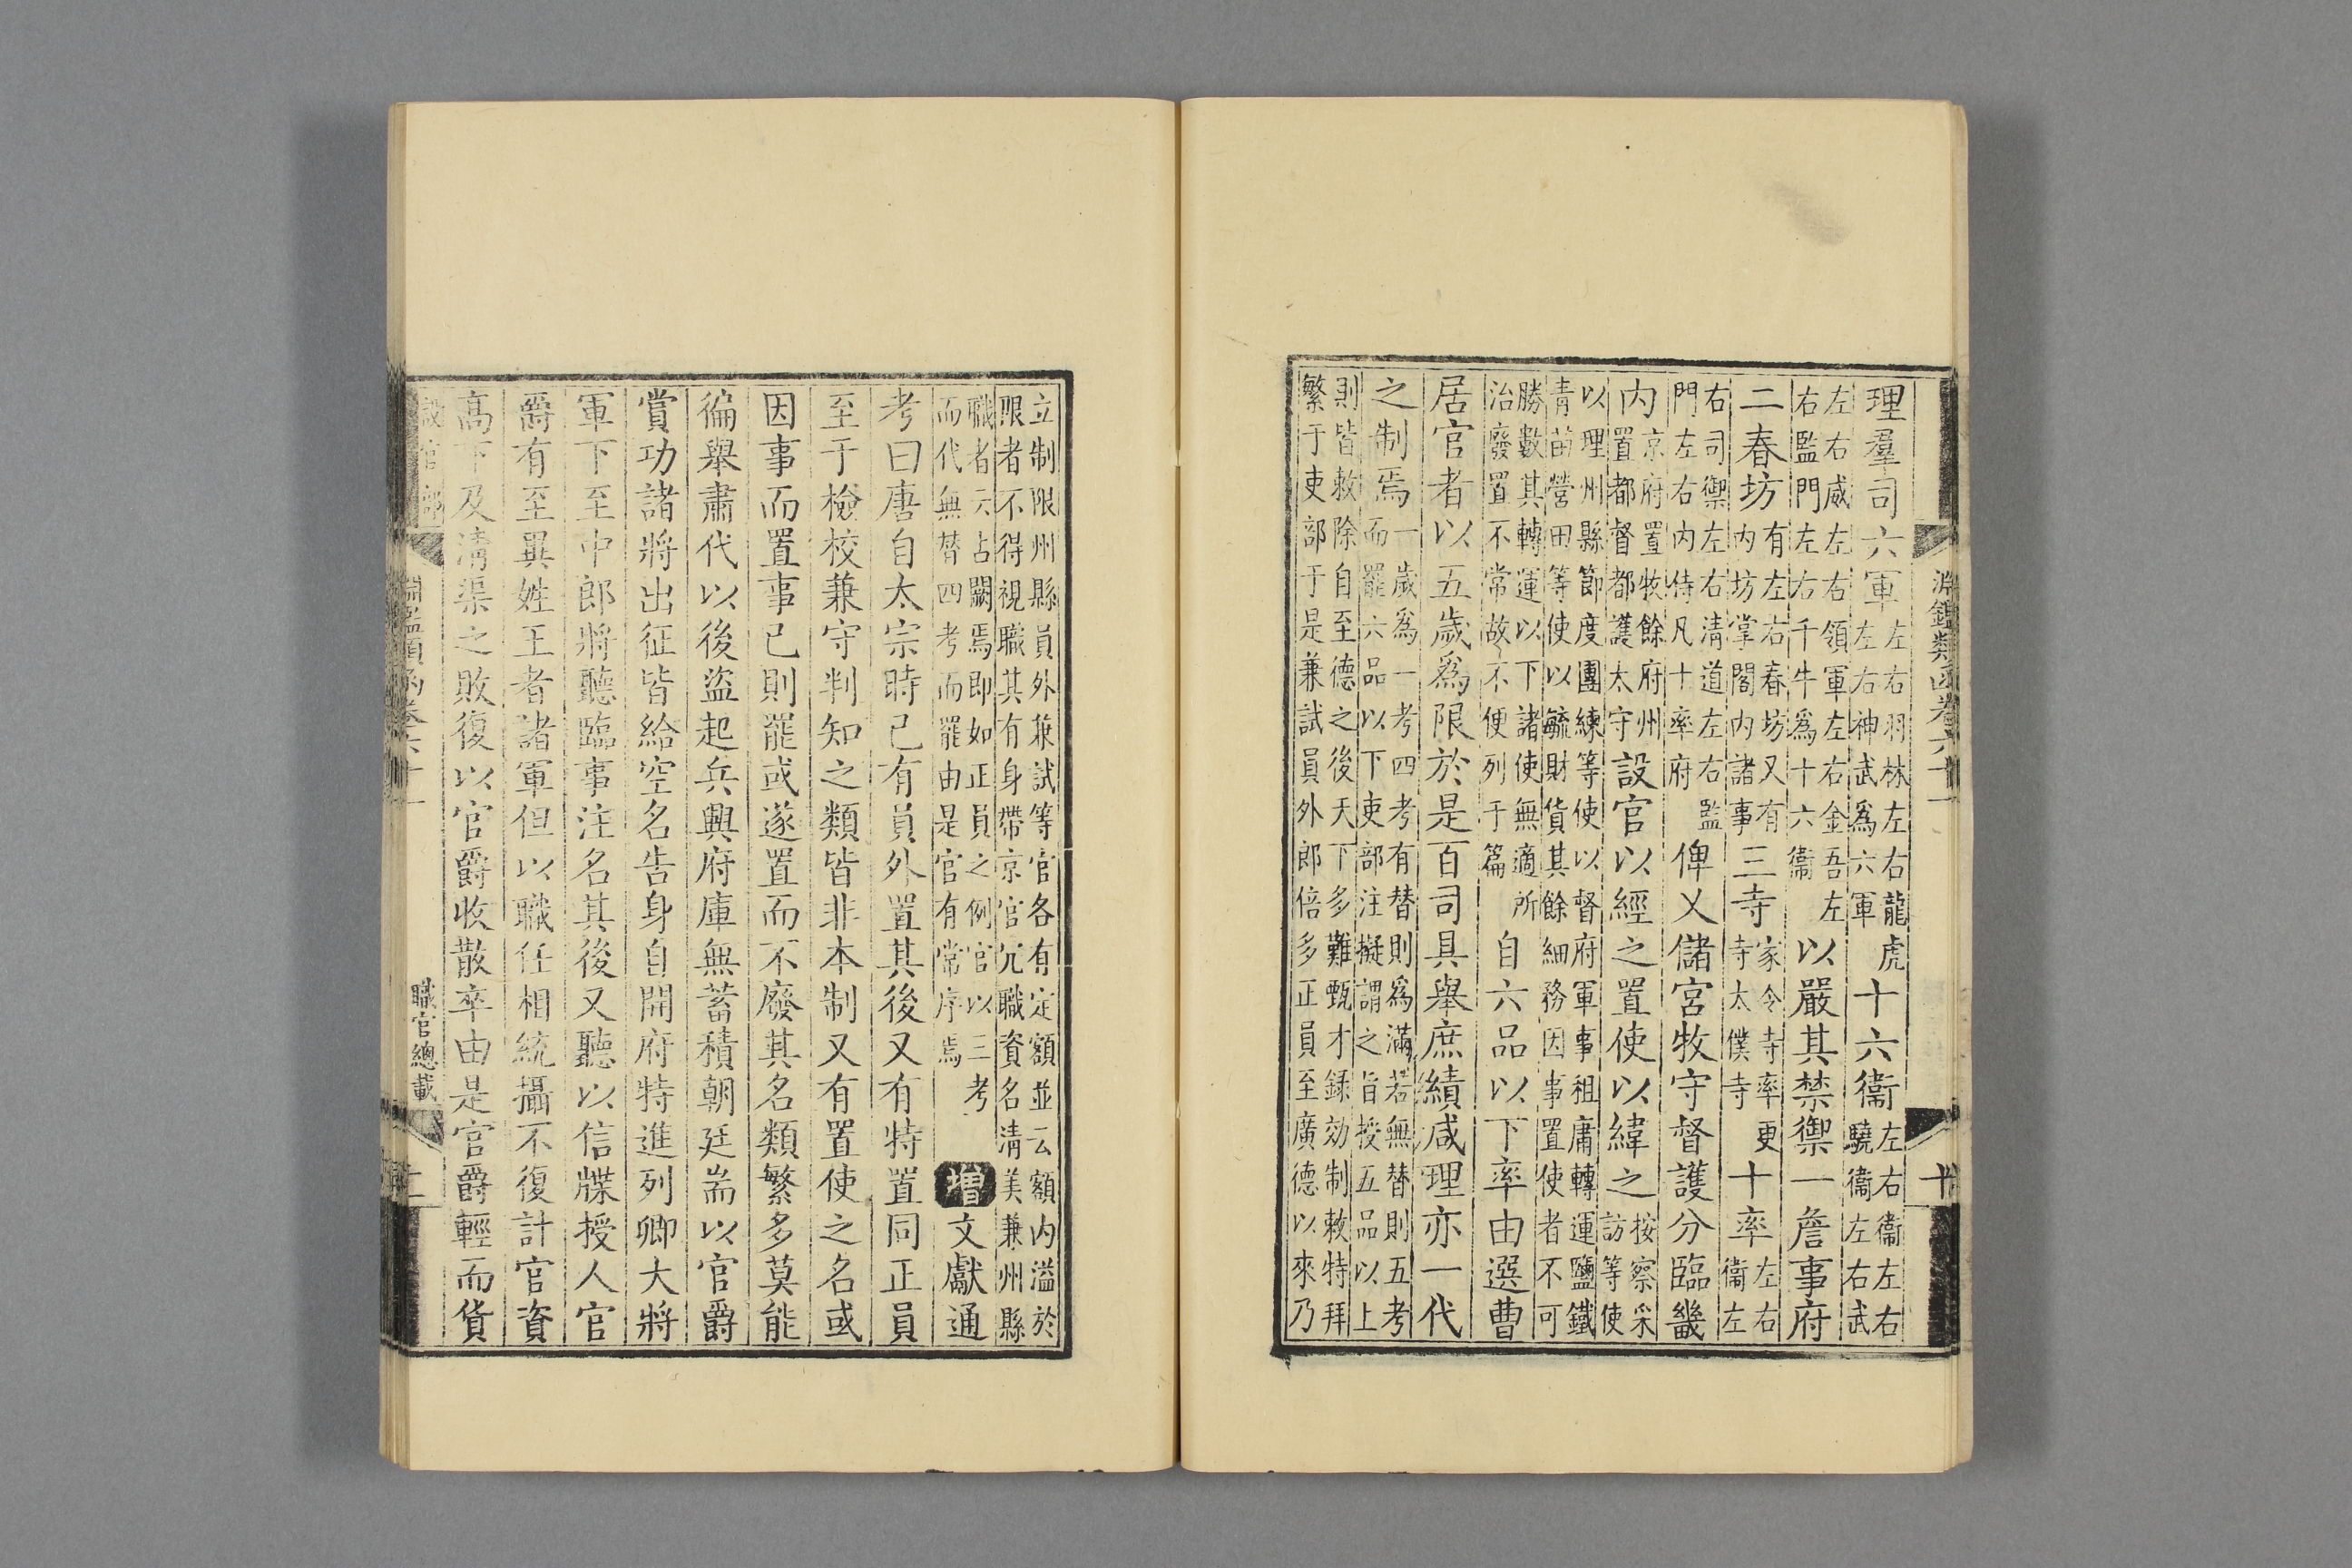 淵鑑類函卷六十一
十
理羣司六軍左右羽林左右龍虎左右神武爲六軍十六衞左右衞左右驍衞左右武
左右威左右領軍左右金吾左右監門左右千牛爲十六衞以嚴其禁禦一詹事府
二春坊有左右春坊又有内坊掌閣内諸事三寺家令寺率更寺太僕寺十率左右衞左
右司禦左右清道左右監門左右内侍凡十率府俾乂儲宮牧守督護分臨畿
内京府置牧餘府州置都督都護太守設官以經之置使以緯之按察采訪等使
以理州縣節度團練等使以督府軍事租庸轉運鹽鐵青苗營田等使以毓財貨其餘細務因事置使者不可
勝數其轉運以下諸使無適所治廢置不常故不便列于篇自六品以下率由選曹
居官者以五歲爲限於是百司具舉庶績咸理亦一代
之制焉一歲爲一考四考有替則爲滿若無替則五考而罷六品以下吏部注擬謂之旨授五品以上
則皆敕除自至德之後天下多難甄才録効制敕特拜繁于吏部于是兼試員外郎倍多正員至廣德以來乃
立制限州縣員外兼試等官各有定額並云額内溢於限者不得視職其有身帶京官冗職資名清美兼州縣
職者云占闕焉即如正員之例官以三考而代無替四考而罷由是官有常序焉增文獻通
考曰唐自太宗時已有員外置其後又有特置同正員
至于檢校兼守判知之類皆非本制又有置使之名或
因事而置事已則罷或遂置而不廢其名類繁多莫能
徧舉肅代以後盜起兵興府庫無蓄積朝廷耑以官爵
賞功諸將出征皆給空名告身自開府特進列卿大將
軍下至中郎將聽臨事注名其後又聽以信牒授人官
爵有至異姓王者諸軍但以職任相統攝不復計官資
高下及清渠之敗復以官爵收散卒由是官爵輕而貨
設官部
淵鑑類函卷六十一
職官總載